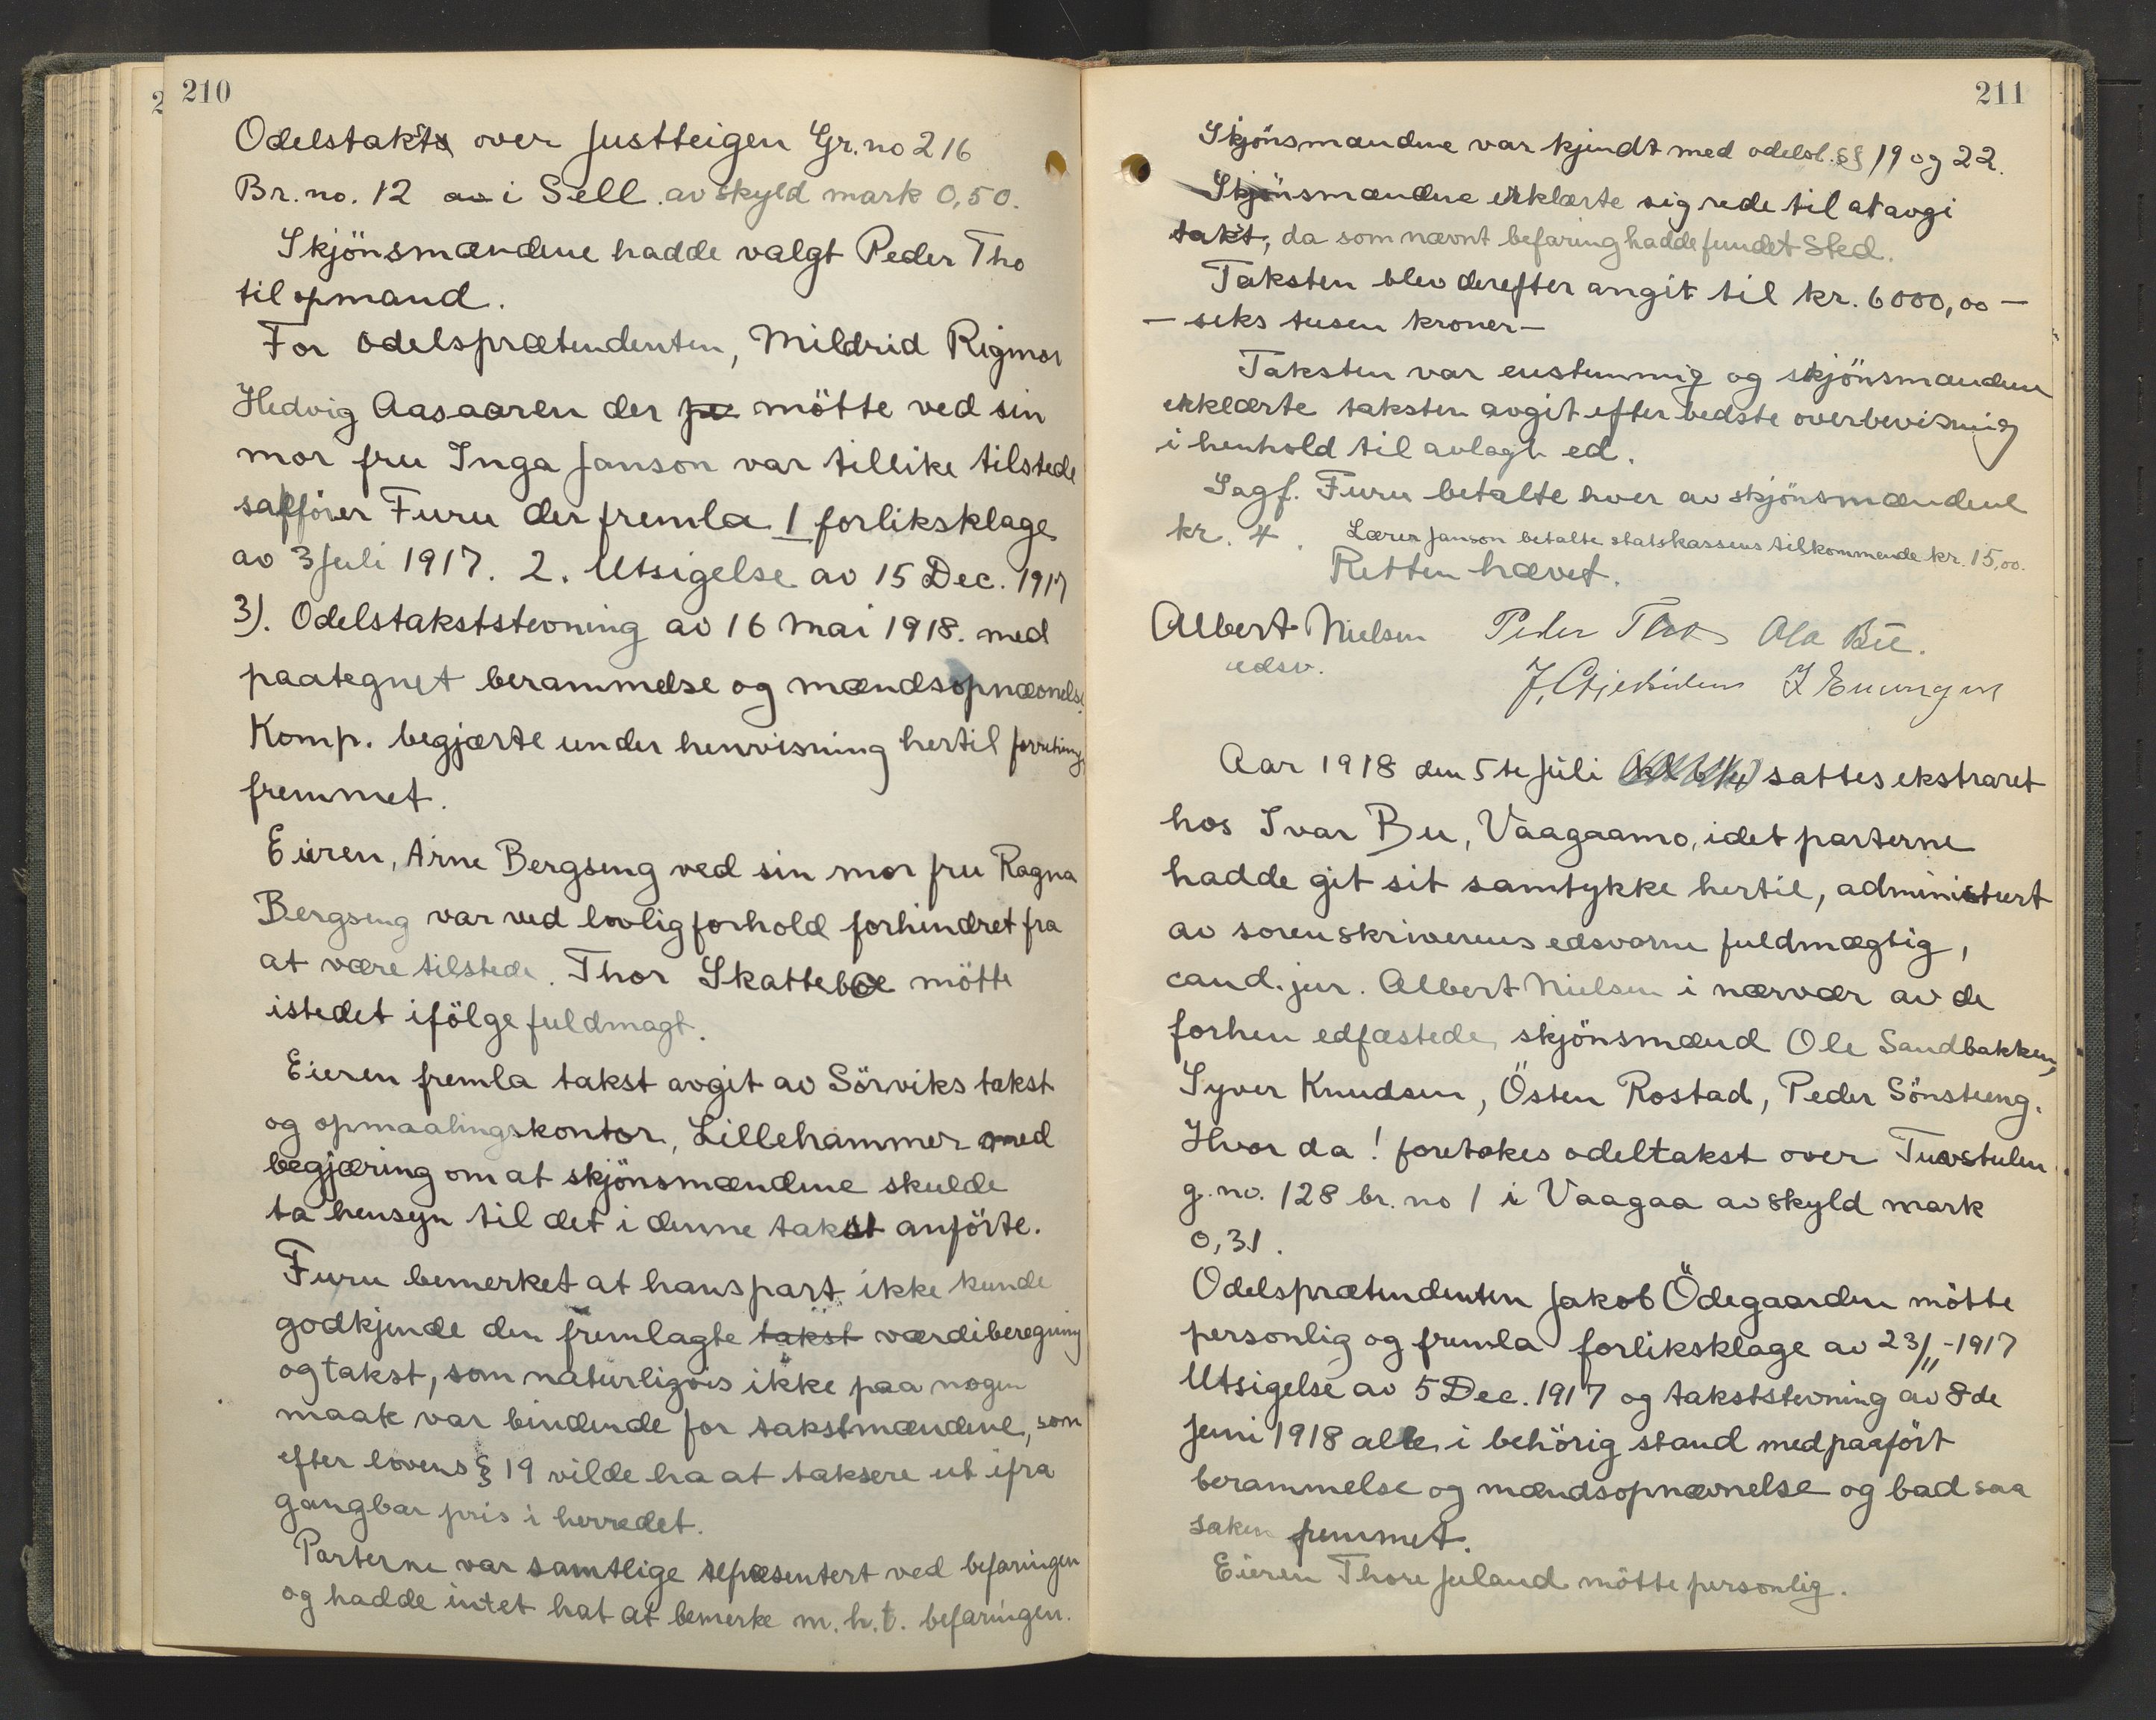 210
Odelstakst over Justteigen Gr. no 216
Br. no. 12 av i Sell. av skyld mark 0,50.
Skjönsmændene hadde valgt Peder Tho
til opmand.
For odelsprætendenten, Mildrid Rigmor
Hedvig Aasaaren der mötte ved sin
mor fru Inga Janson var tillike tilstede
sakförer Furu der fremla 1 forliksklage
av 3 Juli 1917. 2. Utsigelse av 15 Dec. 1917
3). Odelstakststevning av 16 Mai 1918. med
paategnet berammelse og mændsopnævnelse.
Komp. begjærte under henvisning hertil forretning
fremmet.
Eieren, Arne Bergseng ved sin mor fru Ragna
Bergseng var ved lovlig forhold forhindret fra
at være tilstede. Thor Skatteboe mötte
istedet ifölge fuldmagt.
Eieren fremla takst avgit av Sörviks takst
og opmaalingskontor, Lillehammer med
begjæring om at skjönsmændene skulde
ta hensyn til det i denne takst anförte.
Furu bemerket at hans part ikke kunde
godkjende den fremlagte takst værdiberegning
og takst, som naturligvis ikke paa nogen
maate var bindende for takstmændene, som
efter lovens § 19 vilde ha at taksere ut ifra
gangbar pris i herredet.
Parterne var samtlige repræsentert ved befaringen
og hadde intet hat at bemerke m.h.t. befaringen.
211
Skjönsmændene var kjendt med odelsl. §§ 19 og 22.
Skjönsmændene erklærte sig rede til at avgi
takst, da som nævnt befaring hadde fundet Sted.
Taksten blev derefter angit til kr. 6000,00 —
— seks tusen kroner —
Taksten var enstemmig og skjönsmændene
erklærte taksten avgit efter bedste overbevisning
i henhold til avlagt ed.
Sagf. Furu betalte hver av skjönsmændene
kr. 4. Lærer Janson betalte statskassens tilkommende kr. 15,00.
Retten hævet.
Albert Nielsen Peder Tho Ola Bu.
edsv.
Aar 1918 den 5te Juli sattes ekstraret
hos Ivar Bu, Vaagaamo, idet parterne
hadde git sit samtykke hertil, administrert
av sorenskriverens edsvorne fuldmægtig,
cand. jur. Albert Nielsen i nærvær av de
forhen edfæstede skjönsmænd Ole Sandbakken,
Syver Knudsen, Östen Rostad, Peder Sönsteeng.
Hvor da! foretokes odeltakst over Tuvstulen
g. no. 128 br. no 1 i Vaagaa av skyld mark
0,31.
Odelsprætendenten Jakob Ödegaarden mötte
personlig og fremla forliksklage av 23/11-1917
Utsigelse av 5 Dec. 1917 og takststevning av 8de
Juni 1918 alle i behörig stand med paaført
berammelse og mændsopnævnelse og bad saa
saken fremmet.
Eieren Thore Juland mötte personlig.